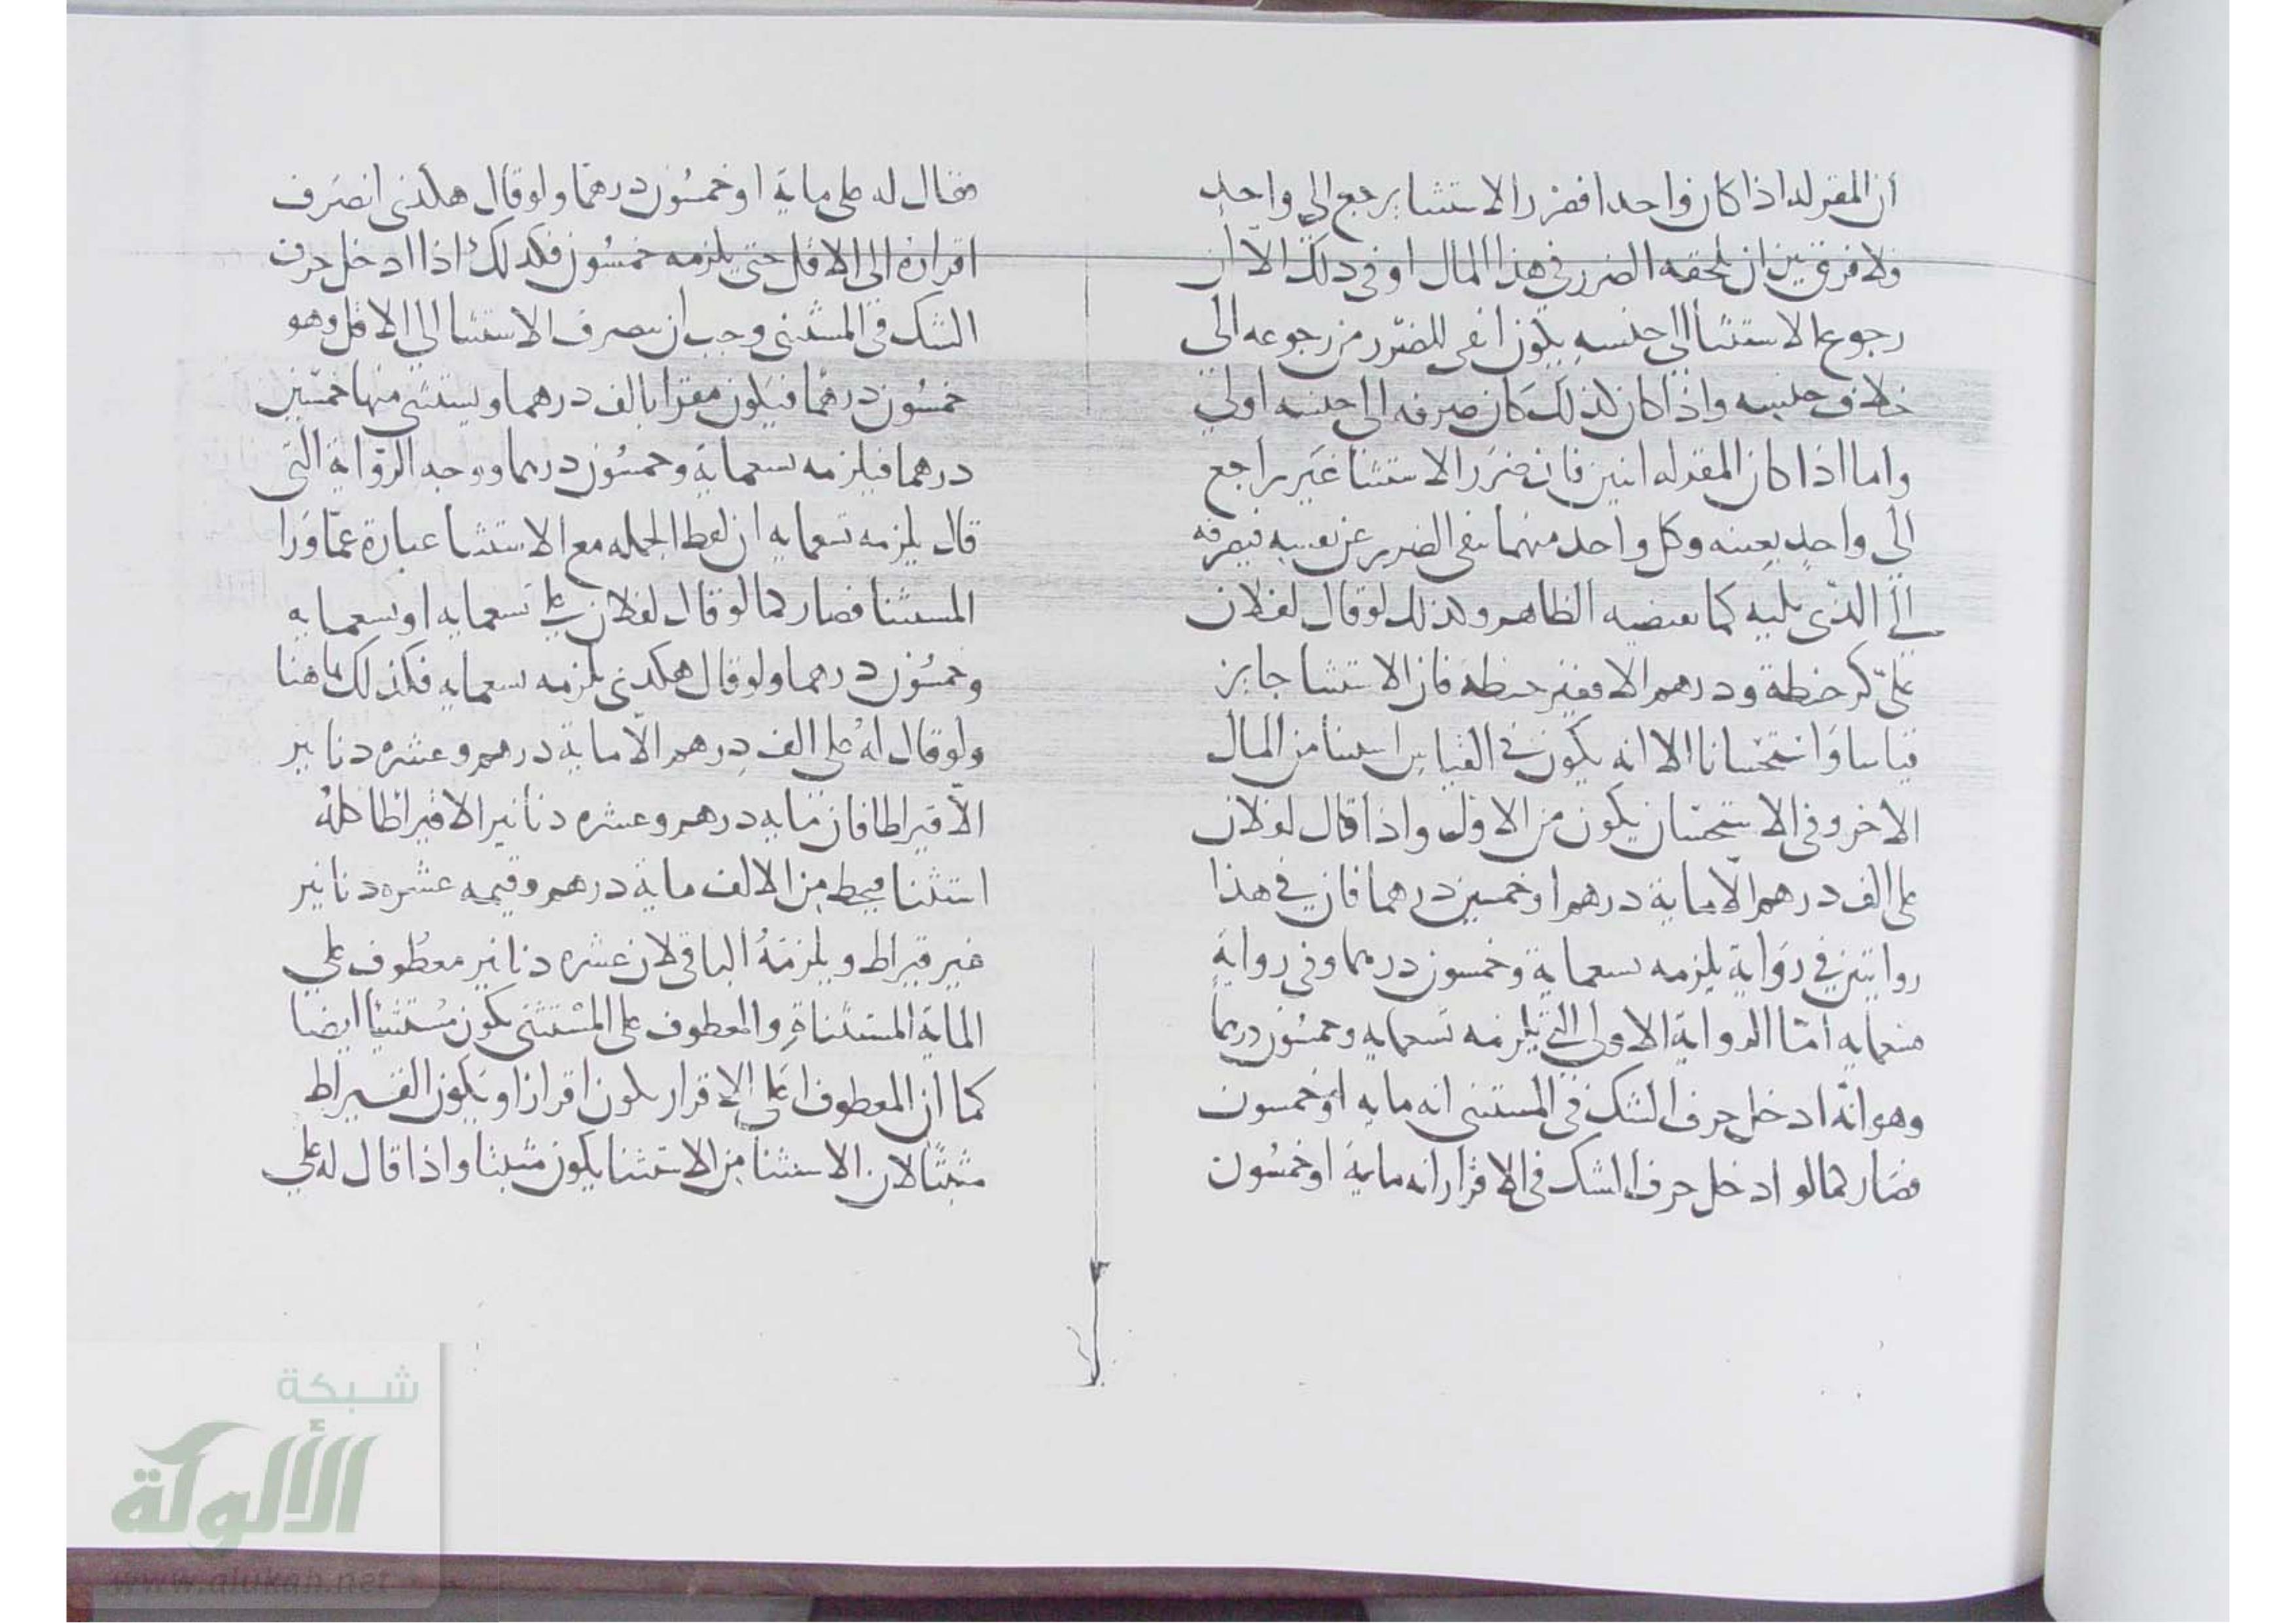 أن المقر له اذا كان واحدا فضرر الاستثنا يرجع الى واحد
ولا فرق بين ان يلحقه الضرر في هذا المال او في ذلك الا ان
رجوع الاستثنا الى جنسه يكون انفى للضرر من رجوعه الى
خلاف جنسه واذا كان كذلك كان صرفه الى جنسه اولى
واما اذا كان المقر له اثنين فان ضرر الاستثنا غير راجع
الى واحد بعينه وكل واحد منهما ينفي الضرر عن نفسه فيصرفه
الى الذي يليه كما يقتضيه الظاهر وكذلك لو قال لفلان
على كر حنطة ودرهم الا قفيز حنطة فان الاستثنا جايز
قياسا واستحسانا الا انه يكون في القياس استثنا من المال
الاخر وفي الاستحسان يكون من الاول واذا قال لفلان
على الف درهم الا ماية درهم او خمسين درهما فان في هذا
روايتين في رواية يلزمه تسعماية وخمسون درهما وفي رواية
تسعمايه أما الرواية الاولى التي يلزمه تسعمايه وخمسون درهما
وهو انه ادخل حرف الشك في المستثنى انه مايه او خمسون
فصار كما لو ادخل حرف الشك في الاقرار انه ماية او خمسون
فقال له على ماية او خمسون درهما ولو قال هكذى انصرف
اقراره الى الاقل حتى يلزمه خمسون فكذلك اذا ادخل حرف
الشك في المستثنى وجب ان يصرف الاستثنا الى الاقل وهو
خمسون درهما فيكون مقرا بالف درهما ويستثنى منها خمسين
درهما فيلزمه تسعماية وخمسون درهما ووجه الرواية التي
قال يلزمه تسعمايه ان لفظ الجمله مع الاستثنا عبارة عما ورا
المستثنا فصار كما لو قال لفلان على تسعمايه او تسعمايه
وخمسون درهما ولو قال هكذى يلزمه تسعمايه فكذلك هاهنا
ولو قال له على الف درهم الا ماية درهم وعشره دنانير
الا قيراطا فان مايه درهم وعشره دنانير الا قيراطا كله
استثنا فيحط من الالف ماية درهم وقيمه عشره دنانير
غير قيراط ويلزمه الباقي لان عشره دنانير معطوف على
الماية المستثناة والمعطوف على المستثنى يكون مستثنيا ايضا
كما ان المعطوف على الاقرار يكون اقرارا ويكون القيراط
مثبتا لان الاستثنا من الاستثنا يكون مثبتا واذا قال له على
شبكة
الألوكة
www.alukah.net